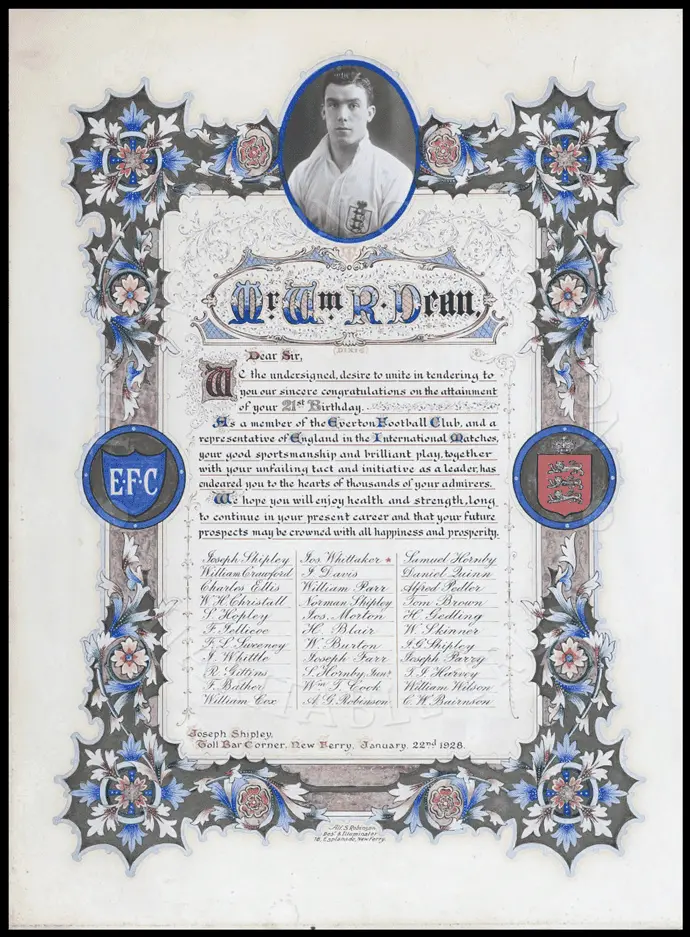 Mr. Wm R. Dean,
DIXIE
Dear Sir,
We the undersigned, desire to unite in tendering to
you our sincere congratulations on the attainment
of your 21st Birthday.
As a member of the Everton Football Club, and a
representative of England in the International Matches,
your good sportsmanship and brilliant play, together
with your unfailing tact and initiative as a leader, has
endeared you to the hearts of thousands of your admirers.
We hope you will enjoy health and strength, long
to continue in your present career and that your future
prospects may be crowned with all happiness and prosperity.
E·F·C
Joseph Shipley Jos. Whittaker * Samuel Hornby
William Crawford J. Davis Daniel Quinn
Charles Ellis William Parr Alfred Pedler
W. H. Christall Norman Shipley Tom Brown
S. Hopley Jos. Morton H. Gedling
F. Jellicoe H. Blair W. Skinner
Sweeney W. Burton J. G. Shipley
J. Whittle Joseph Farr Joseph Parry
R. Gittins S. Hornby Junr. Harvey
F. Bather Wm. T. Cook William Wilson
William Cox A. G. Robinson C. W. Bairnson
Joseph Shipley,
Toll Bar Corner, New Ferry, January, 22nd 1928.
Alf. S. Robinson,
Des. & Illuminator
18, Esplanade, New Ferry.